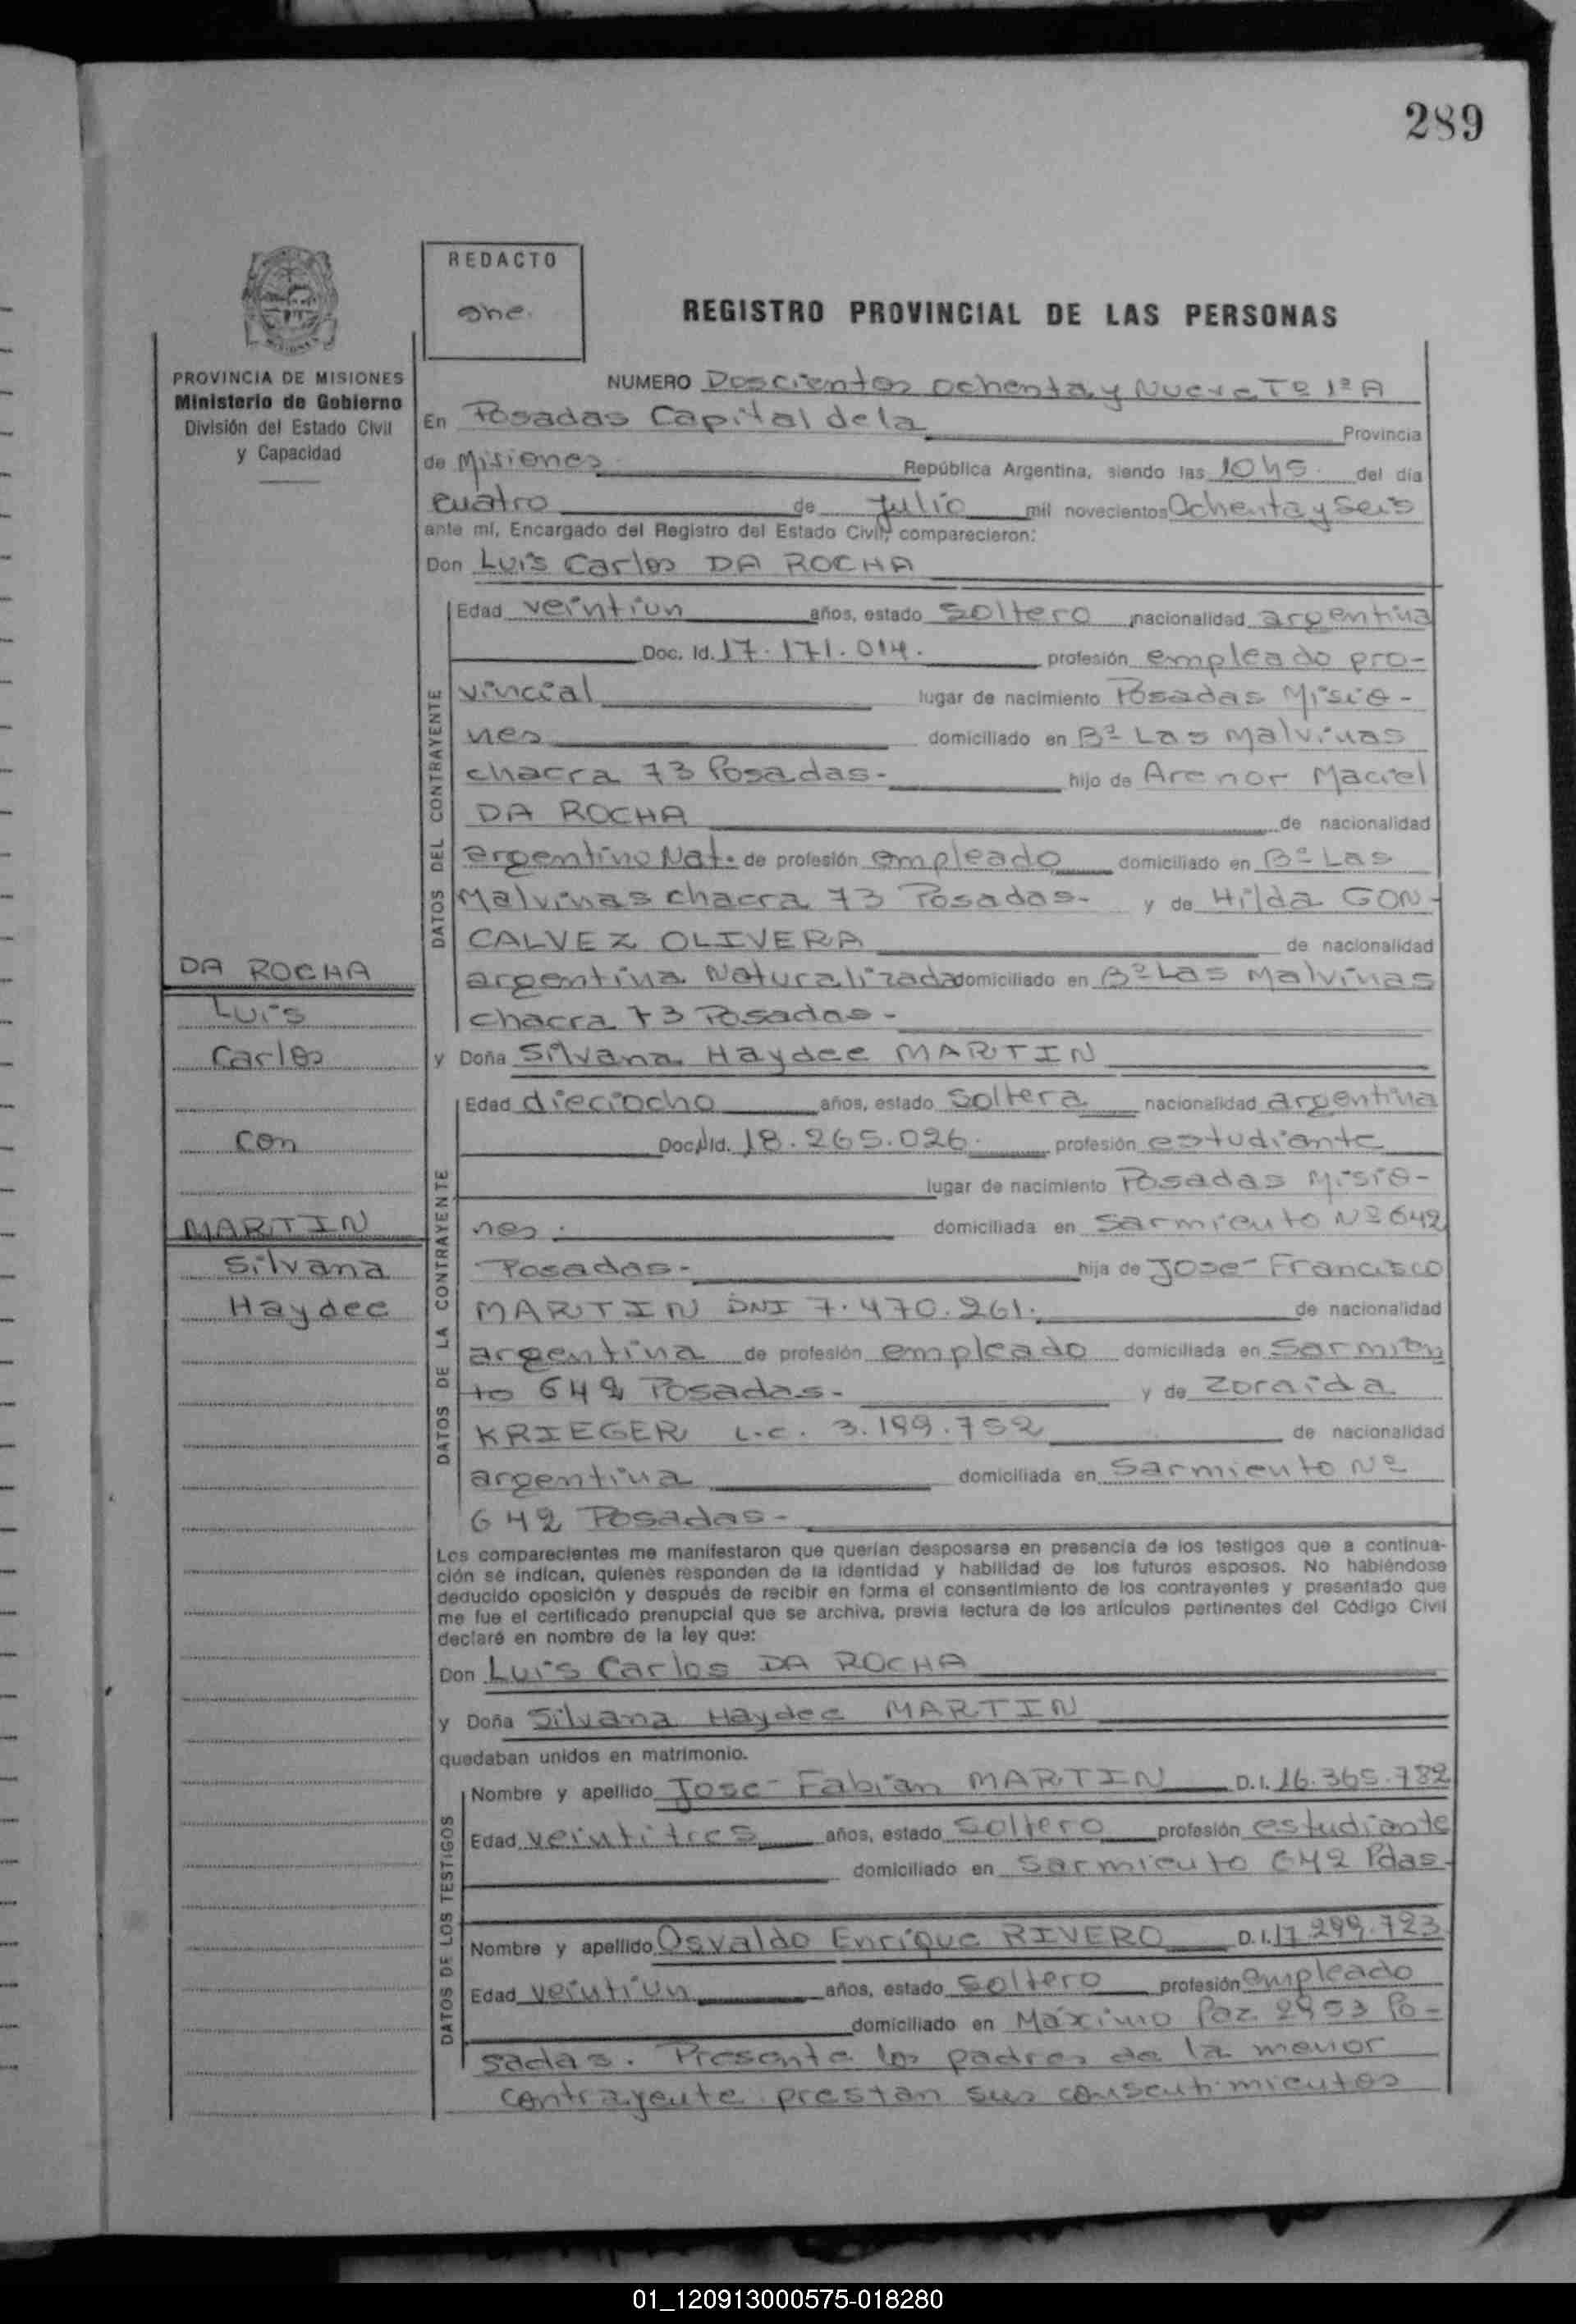 289
REDACTO
REGISTRO PROVINCIAL DE LAS PERSONAS
PROVINCIA DE MISIONES
Ministerio de Gobierno
División del Estado Civil
y Capacidad
NUMERO Doscientos ochenta y Nueve Tº 1º A
En Posadas Capital de la Provincia
de Misiones República Argentina, siendo las 10 hs. del día
cuatro de Julio mil novecientos Ochenta y Seis
ante mí, Encargado del Registro del Estado Civil, comparecieron:
Don Luis Carlos DA ROCHA
DATOS DEL CONTRAYENTE
Edad veintiun años, estado Soltero nacionalidad argentina
Doc. Id. 17.171.014. profesión empleado pro-
vincial lugar de nacimiento Posadas Misio-
nes domiciliado en Bº Las Malvinas
chacra 73 Posadas- hijo de Arenor Maciel
DA ROCHA de nacionalidad
argentino Nat. de profesión empleado domiciliado en Bº Las
Malvinas chacra 73 Posadas- y de Hilda GON-
CALVEZ OLIVERA de nacionalidad
argentina Naturalizada domiciliado en Bº Las Malvinas
chacra 73 Posadas-
y Doña Silvana Haydee MARTIN
DATOS DE LA CONTRAYENTE
Edad dieciocho años, estado Soltera nacionalidad argentina
Doc. Id. 18.265.026. profesión estudiante
lugar de nacimiento Posadas Misio-
nes. domiciliada en Sarmiento Nº 642
Posadas- hija de Jose Francisco
MARTIN DNI 7.470.261. de nacionalidad
argentina de profesión empleado domiciliada en Sarmien
to 642 Posadas- y de Zoraida
KRIEGER L.C. 3.199.752 de nacionalidad
argentina domiciliada en Sarmiento Nº
642 Posadas-
DA ROCHA
Luis
Carlos
con
MARTIN
Silvana
Haydee
Los comparecientes me manifestaron que querían desposarse en presencia de los testigos que a continua-
ción se indican, quienes responden de la identidad y habilidad de los futuros esposos. No habiéndose
deducido oposición y después de recibir en forma el consentimiento de los contrayentes y presentado que
me fue el certificado prenupcial que se archiva, previa lectura de los artículos pertinentes del Código Civil
declaré en nombre de la ley que:
Don Luis Carlos DA ROCHA
y Doña Silvana Haydee MARTIN
quedaban unidos en matrimonio.
DATOS DE LOS TESTIGOS
Nombre y apellido Jose Fabian MARTIN D.I. 16.365.782
Edad veintitres años, estado Soltero profesión estudiante
domiciliado en Sarmiento 642 Pdas-
Nombre y apellido Osvaldo Enrique RIVERO D.I. 17.299.723
Edad veintiun años, estado Soltero profesión empleado
domiciliado en Máximo Paz 2953 Po-
sadas. Presente los padres de la menor
contrayente prestan sus consentimientos
01_120913000575-018280